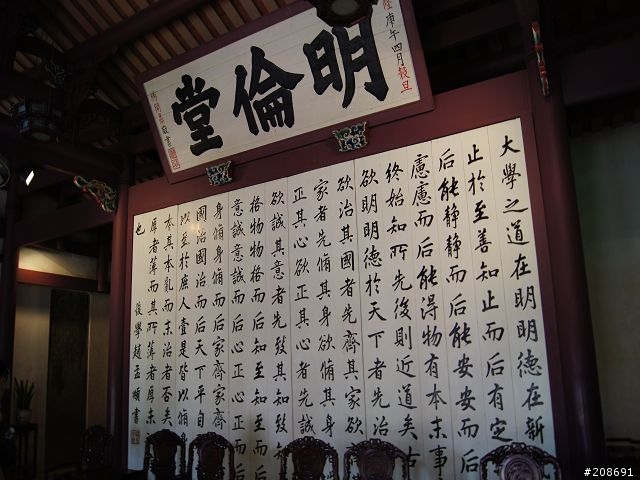 明倫堂
庚午四月穀旦
大學之道在明明德在新
止於至善知止而后有定
后能靜靜而后能安安而后
慮慮而后能得物有本末事
終始知所先後則近道矣古
欲明明德於天下者先治
欲治其國者先齊其家欲
家者先脩其身欲脩其身
正其心欲正其心者先誠
欲誠其意者先致其知致
格物物格而后知至知至而
意誠意誠而后心正心正而
身脩身脩而后家齊家齊
國治國治而后天下平自
以至於庶人壹是皆以脩
本其本亂而末治者否矣
厚者薄而其所薄者厚未
也 後學趙孟頫書
#208691